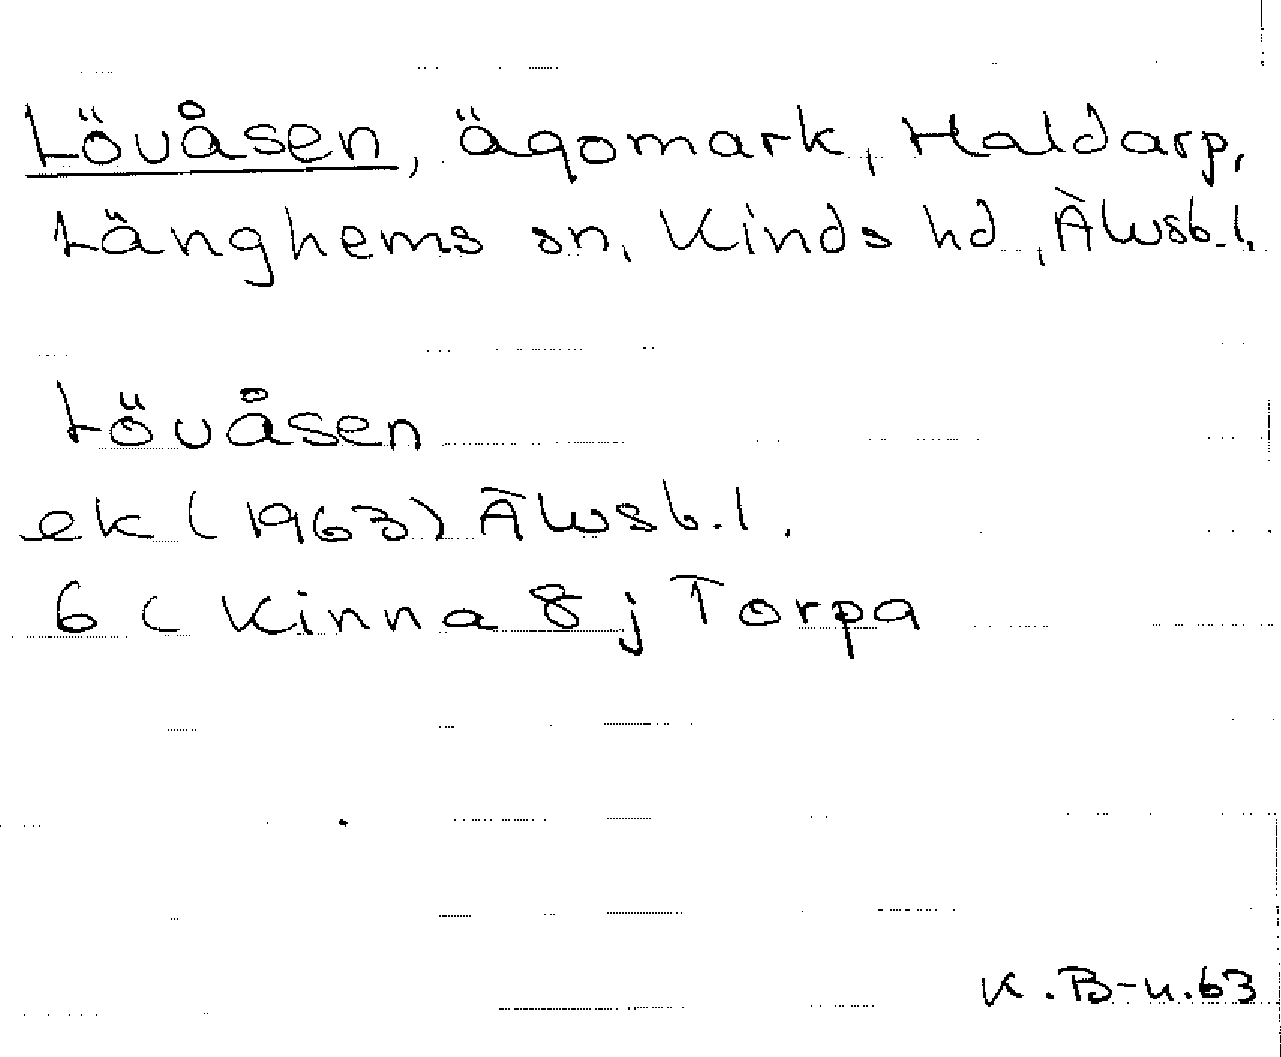 Lövåsen, ägomark, Haldarp,
Länghems sn, Kinds hd, Älvsb.l.
Lövåsen
ek (1963) Älvsb.l.
6 C Kinna 8 j Torpa
K.B-n.63